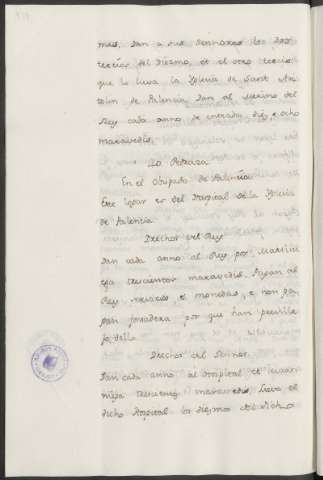 mas, dan a sus Sennores las dos
tercias del Diezmo, et el otro tercio
que lo lieva la Iglesia de Sant An
tolin de Palencia dan al Merino del
Rey cada anno de entrada diez e ocho
maravedis.
La Pedraza
En el Obispado de Palencia
Este logar es del Hospital de la Iglesia
de Palencia
Drechos del Rey
Dan cada anno al Rey por Martinie
ga trescientos maravedis. Pagan al
Rey servicios, et monedas, e non pa
gan fonsadera por que han preville
jo dello.
Drechos del Sennor
Dan cada anno al Hospital et
trescientos maravedis, lieva el
dicho Hospital los diezmos del dicho